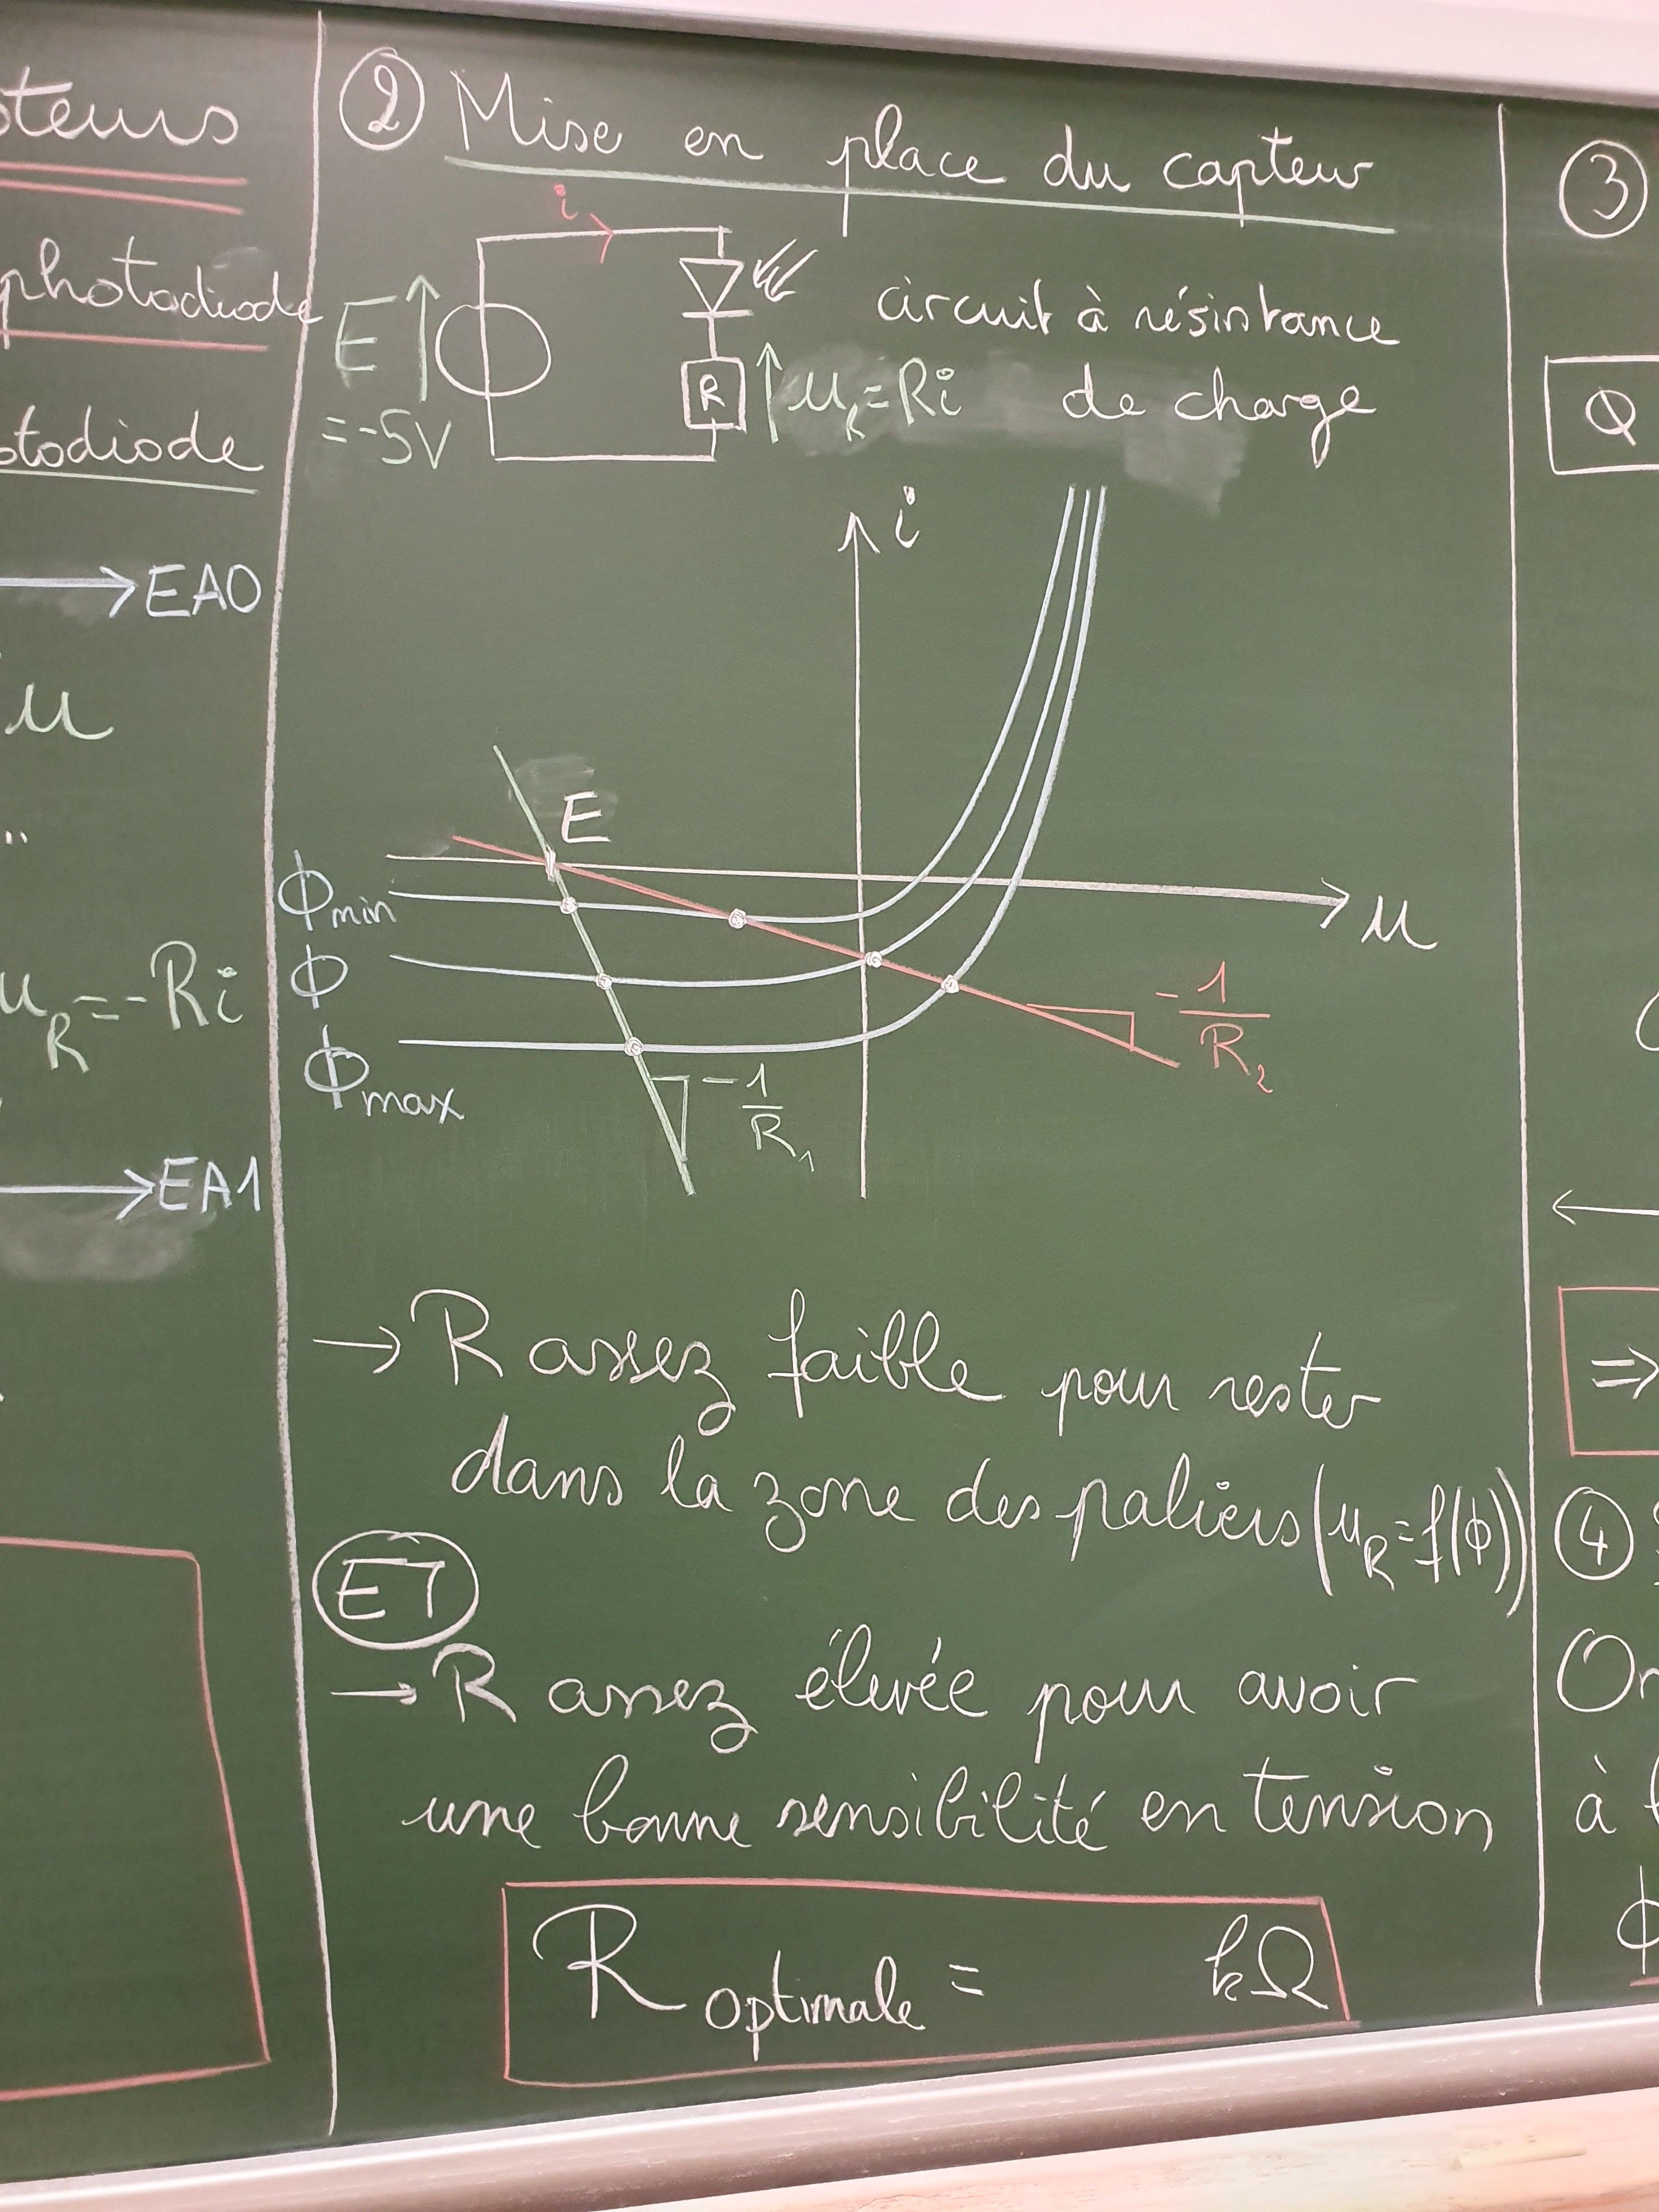 oteurs
photodiode
otodiode
→EA0
u
..
u_R=-Ri
→EA1
② Mise en place du capteur
i
E
=-5V
R
u_R=Ri
circuit à résistance
de charge
i
E
ϕmin
ϕ
ϕmax
u
-1/R₂
-1/R₁
→ R assez faible pour rester
dans la zone des paliers (u_R=f(ϕ))
ET
→ R assez élevée pour avoir
une bonne sensibilité en tension
R optimale = kΩ
③
Q
⇒
④
On
à l
ϕ